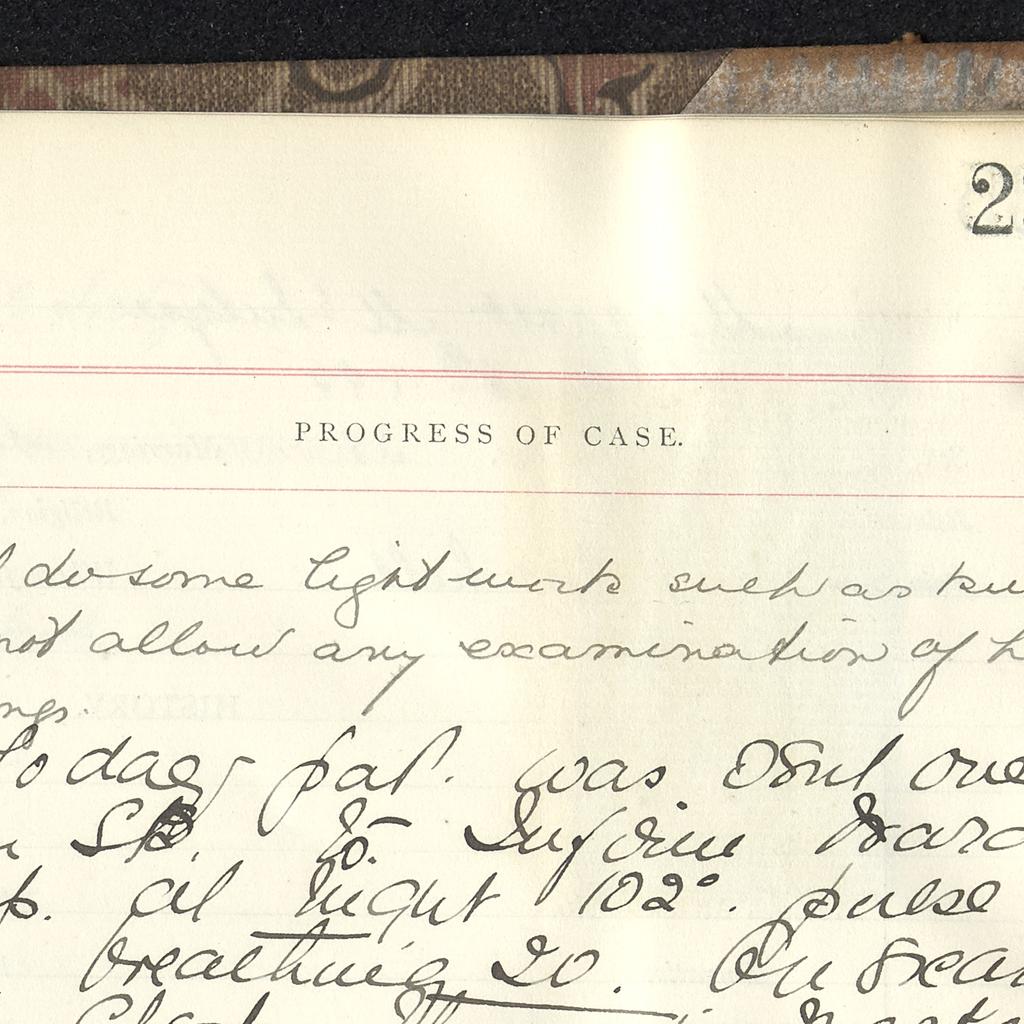 2
PROGRESS OF CASE.
do some light work such as
not allow any examination of
ngs.
Today pat. was sent
to Infirm Ward
p. at night 102°. pulse
breathing 20. On exam